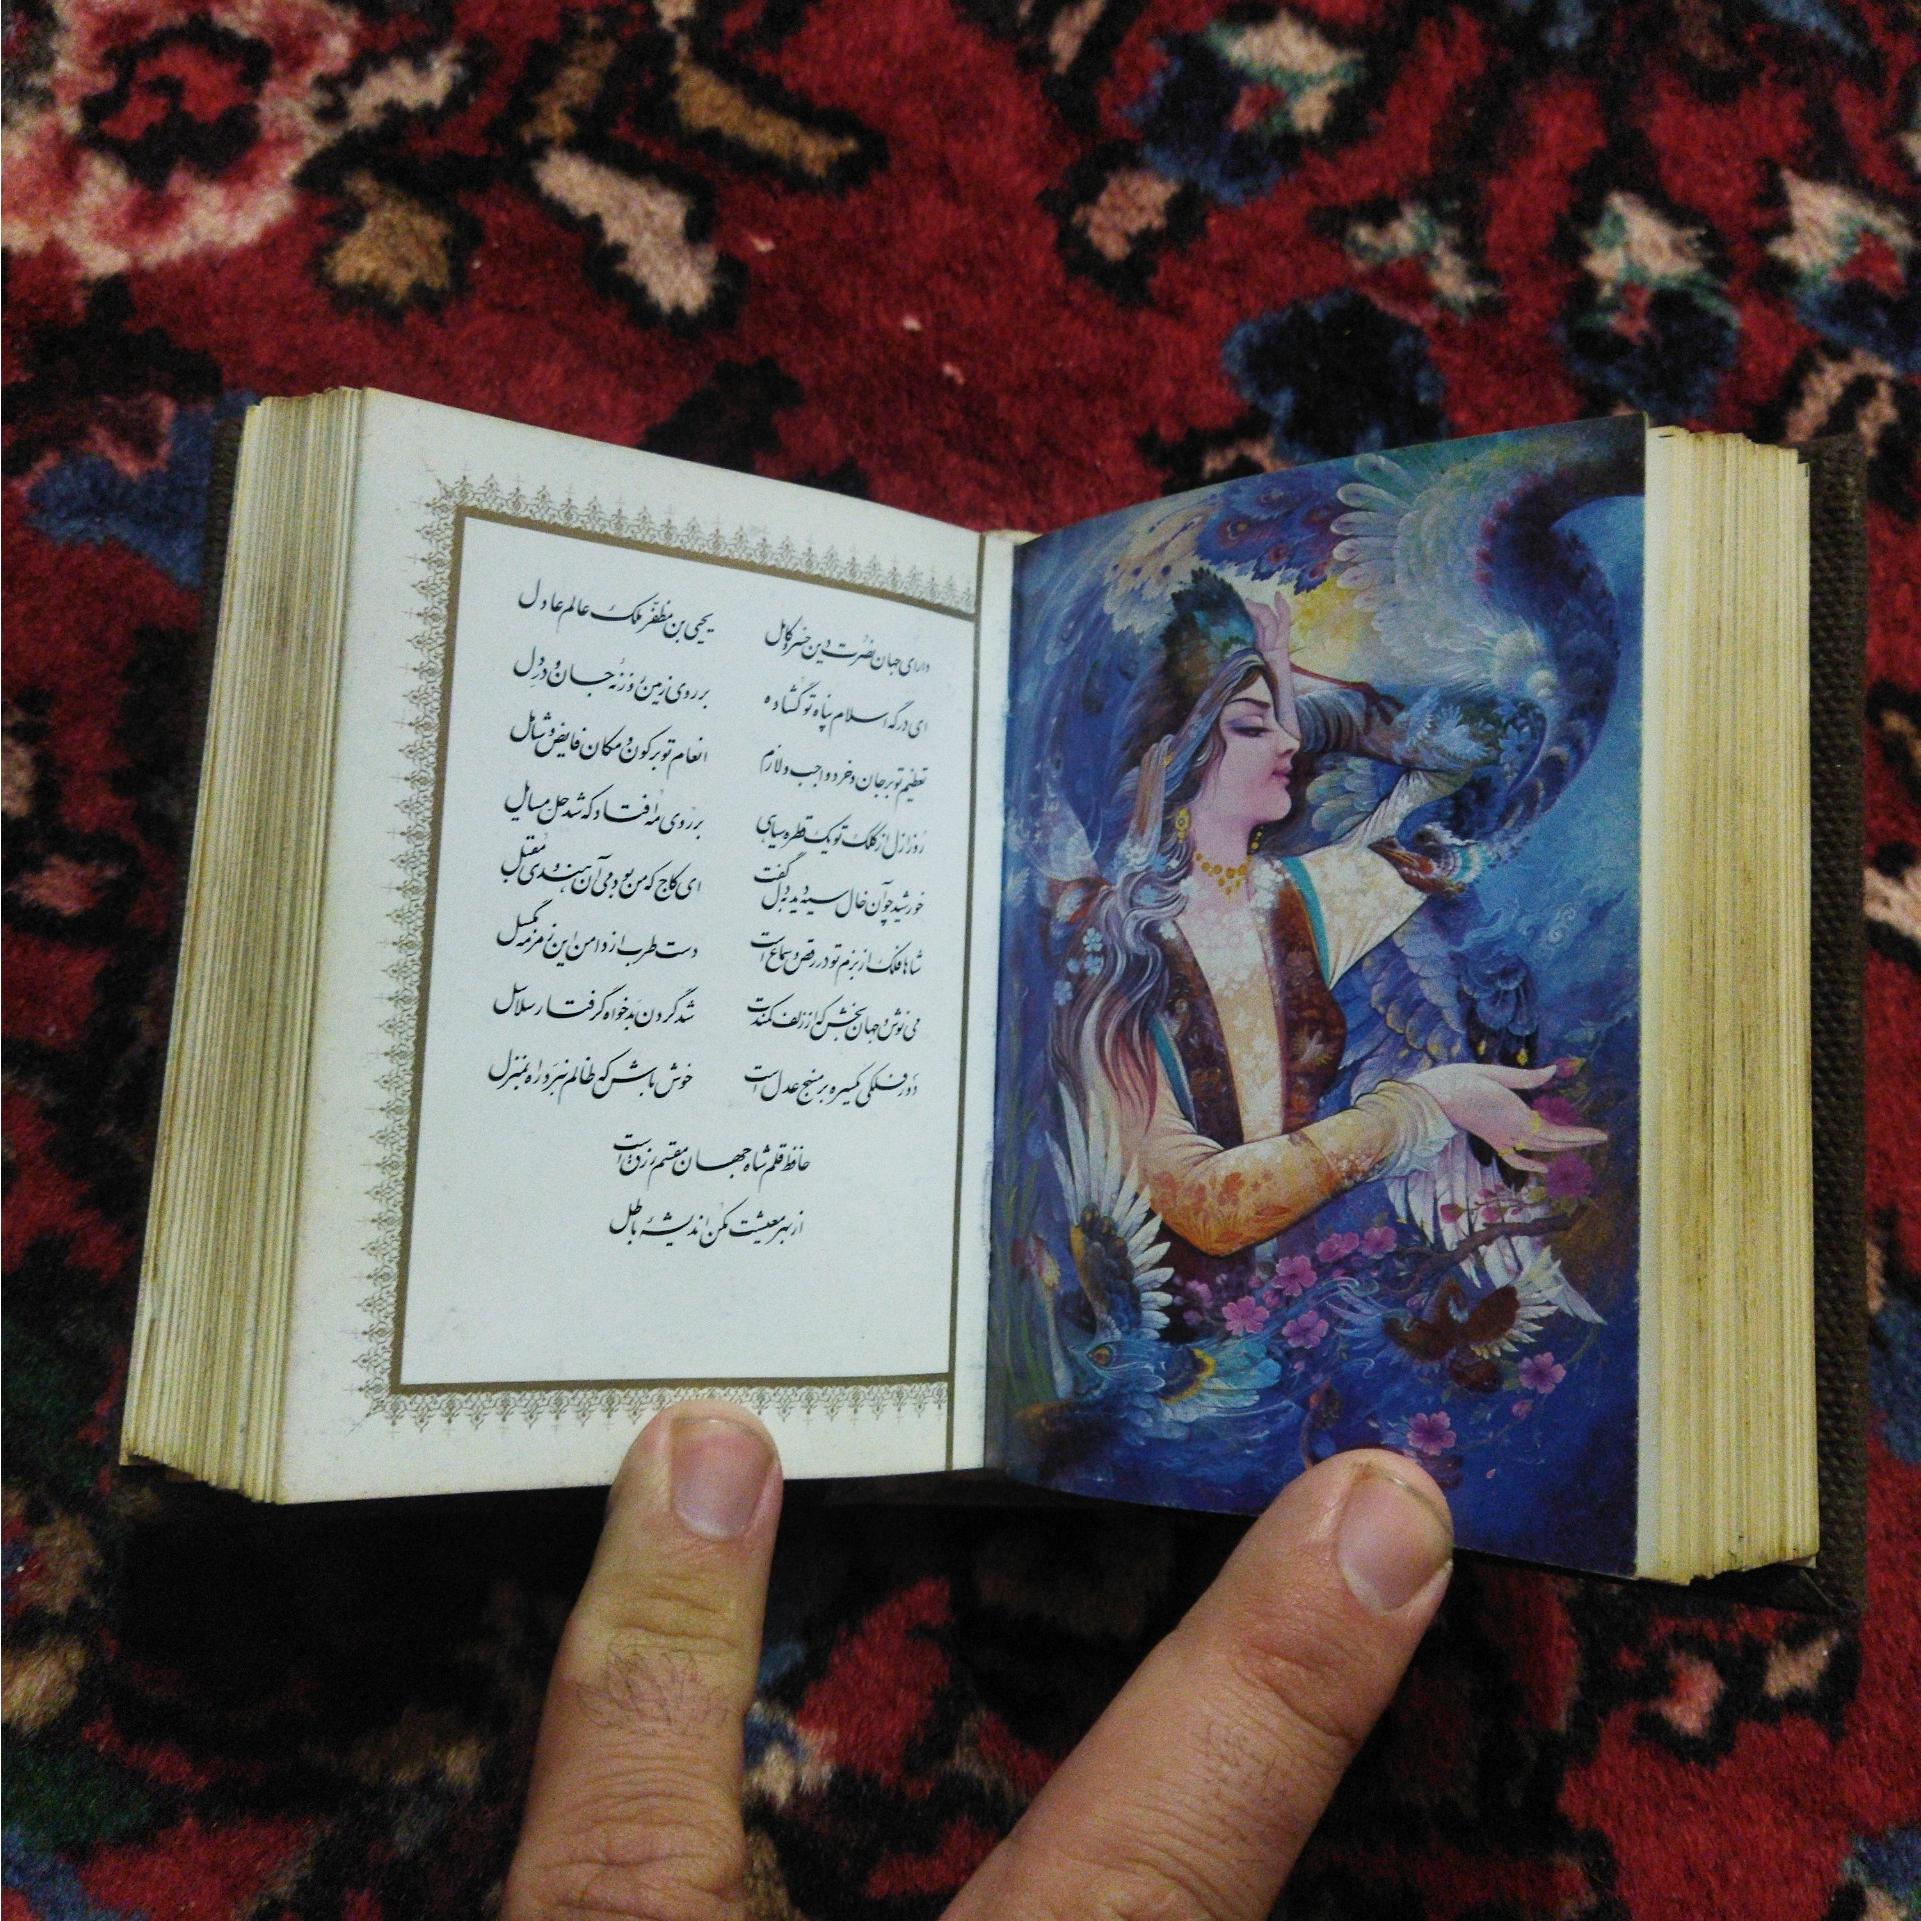 دارای جهان نصرت دین خسرو کامل یحیی بن مظفّر ملک عالم عادل
ای درگه اسلام پناه تو گشاده بر روی زمین روزنهٔ جان و درِ دل
تعظیم تو بر جان و خرد واجب و لازم انعام تو بر کون و مکان فایض و شامل
روز ازل از کلک تو یک قطره سیاهی بر روی مه افتاد که شد حلّ مسایل
خورشید چو آن خال سیه دید بدل گفت ای کاج که من بودمی آن هندوی مقبل
شاها فلک از بزم تو در رقص و سماع است دست طرب از دامن این زمزمه مگسل
می نوش و جهان بخش که از زلف کمندت شد گردن بدخواه گرفتار سلاسل
دور فلکی یکسره بر منهج عدل است خوش باش که ظالم نبرد راه بمنزل
حافظ قلم شاه جهان مقسم رزق است
از بهر معیشت مکن اندیشهٔ باطل